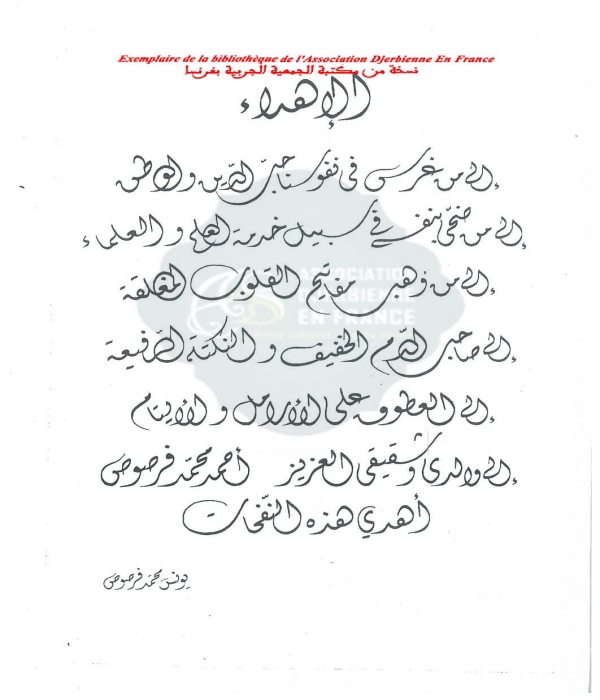 Exemplaire de la bibliothèque de l'Association Djerbienne En France
نسخة من مكتبة الجمعية الجربية بفرنسا
الإهداء
إلى من غرس في نفوسنا حبّ الدّين والوطن
إلى من ضحّى بنفسه في سبيل خدمة العلم والعلماء
إلى من وهب مفاتيح القلوب المغلقة
ASSOCIATION
DJERBIENNE
EN FRANCE
إلى صاحب الدّم الخفيف والنكتة الرّفيعة
إلى العطوف على الأرامل والأيتام
إلى والدي وشقيقي العزيز أحمد محمّد قرصوص
أهدي هذه النّفحات
يونس محمّد قرصوص